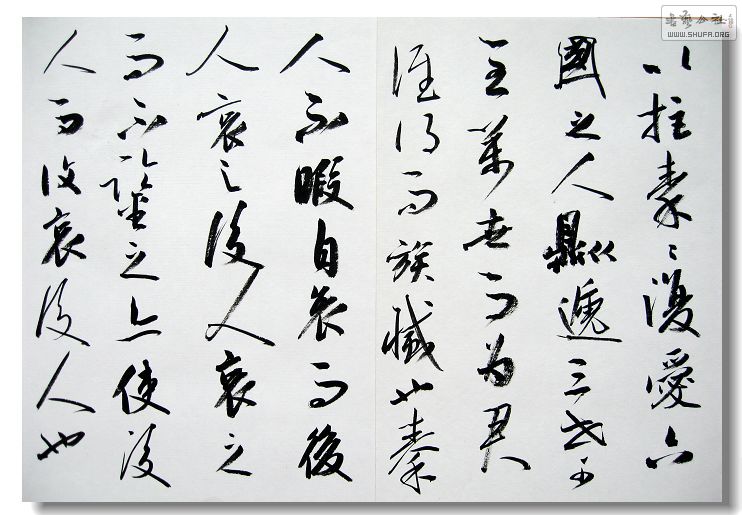 以拒秦〻復愛六
國之人則遞三世可
至萬世而为君
誰得而族滅也秦
人不暇自哀而後
人哀之後人哀之
而不鑒之亦使後
人而復哀後人也
书艺公社
WWW.SHUFA.ORG